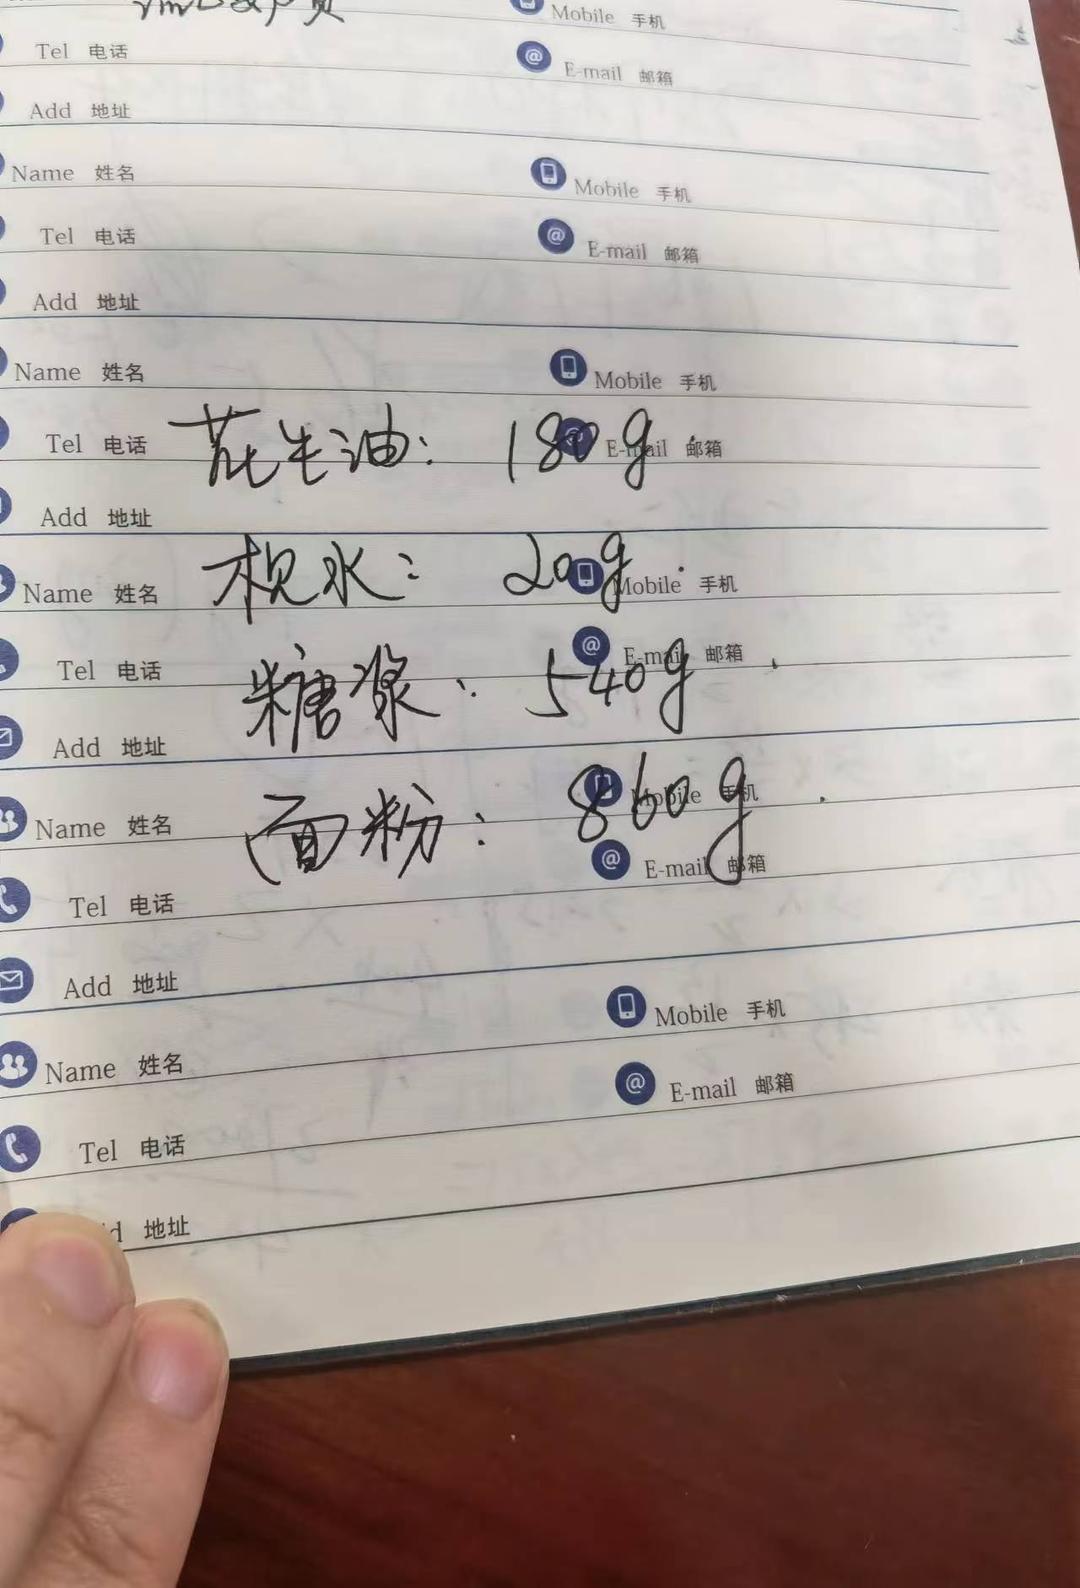 Mobile 手机
Tel 电话 E-mail 邮箱
Add 地址
Name 姓名 Mobile 手机
Tel 电话 E-mail 邮箱
Add 地址
Name 姓名 Mobile 手机
Tel 电话 花生油: 180g E-mail 邮箱
Add 地址
Name 姓名 枧水: 20g Mobile 手机
Tel 电话 E-mail 邮箱
糖浆: 540g
Add 地址
Name 姓名 面粉: 860g Mobile 手机
Tel 电话 E-mail 邮箱
Add 地址
Name 姓名 Mobile 手机
Tel 电话 E-mail 邮箱
地址